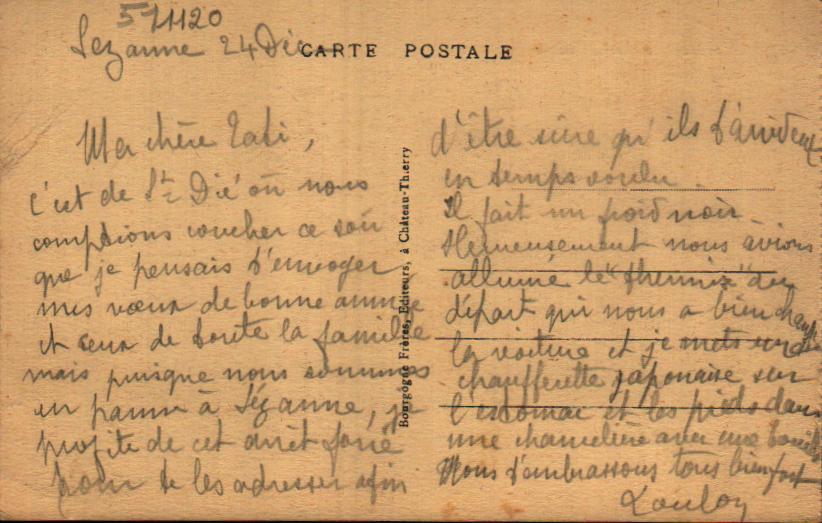 571120
Sezanne 24 Déc
CARTE POSTALE
Ma chère Tati,
c'est de St Dié où nous
comptions coucher ce soir
que je pensais t'envoyer
mes vœux de bonne année
et ceux de toute la famille
mais puisque nous sommes
en panne à Sézanne, je
profite de cet arrêt forcé
pour te les adresser afin
d'être sûre qu'ils t'arrivent
en temps voulu.
Il fait un froid noir.
Heureusement nous avions
allumé le "thermix" du
départ qui nous a bien chauffé
la voiture et je mets une
chaufferette japonaise sur
l'estomac et les pieds dans
une chancelière avec une
Nous t'embrassons tous bien fort
Loulou
Bourgogne Frères, Editeurs, à Château-Thierry